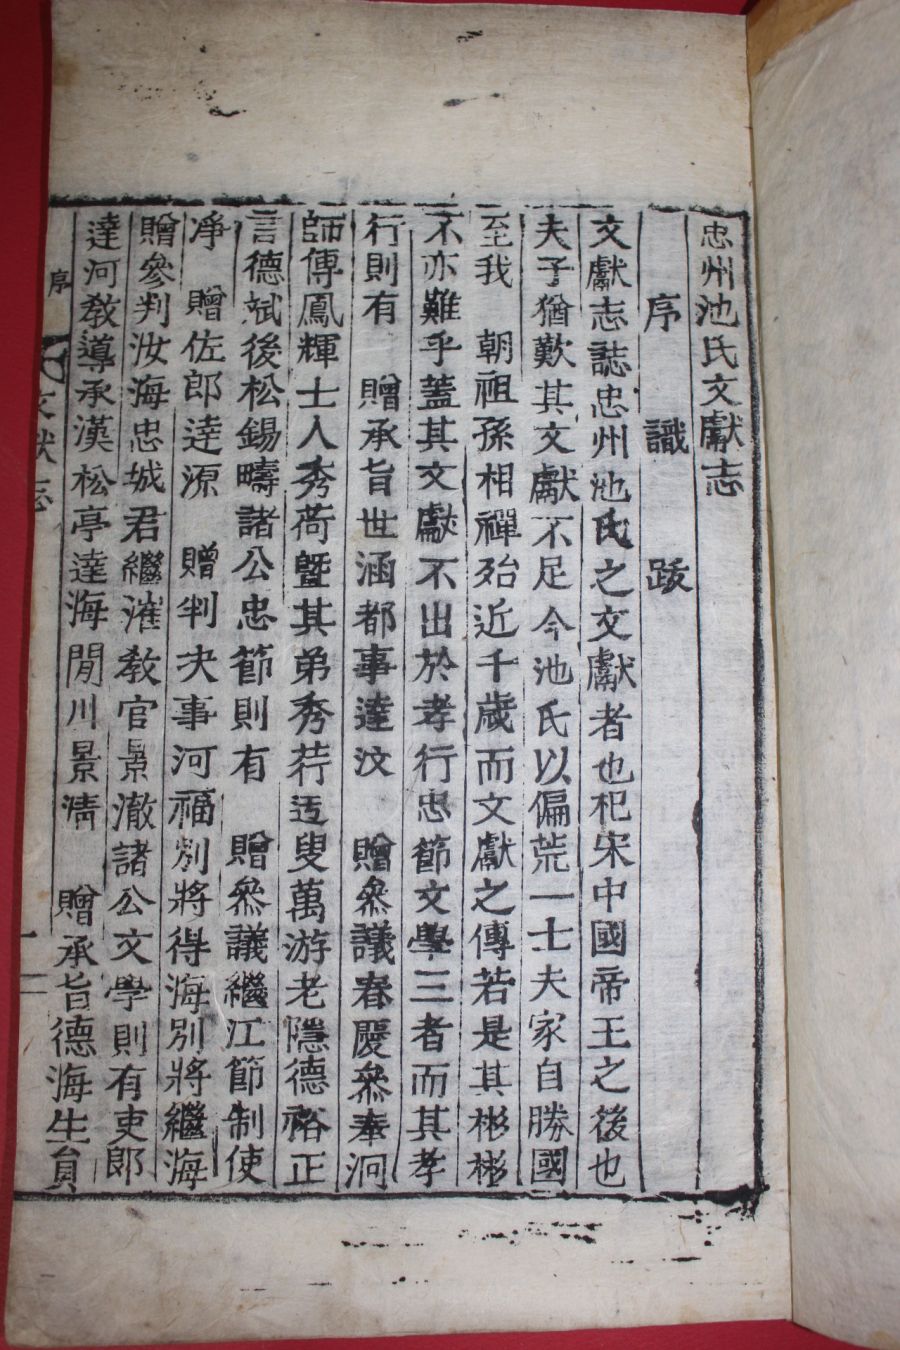 忠州池氏文獻志
序 識 跋
文獻志誌忠州池氏之文獻者也杞宋中國帝王之後也
夫子猶歎其文獻不足今池氏以偏荒一士夫家自勝國
至我 朝祖孫相禪殆近千歲而文獻之傳若是其彬彬
不亦難乎蓋其文獻不出於孝行忠節文學三者而其孝
行則有 贈承旨世涵都事達汶 贈叅議春慶叅奉泂
師傅鳳輝士人秀荷曁其弟秀荇迃叟萬游老隱德裕正
言德斌後松錫疇諸公忠節則有 贈叅議繼江節制使
淨 贈佐郎逹源 贈判决事河福別將得海別將繼海
贈參判汝海忠城君繼漼教官景澈諸公文學則有吏郎
達河教導承漢松亭達海閒川景淸 贈承旨德海生員
序 文獻志 一